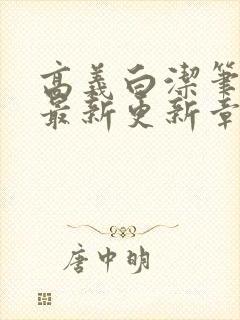 高義白潔筆
最新更新章
唐中明